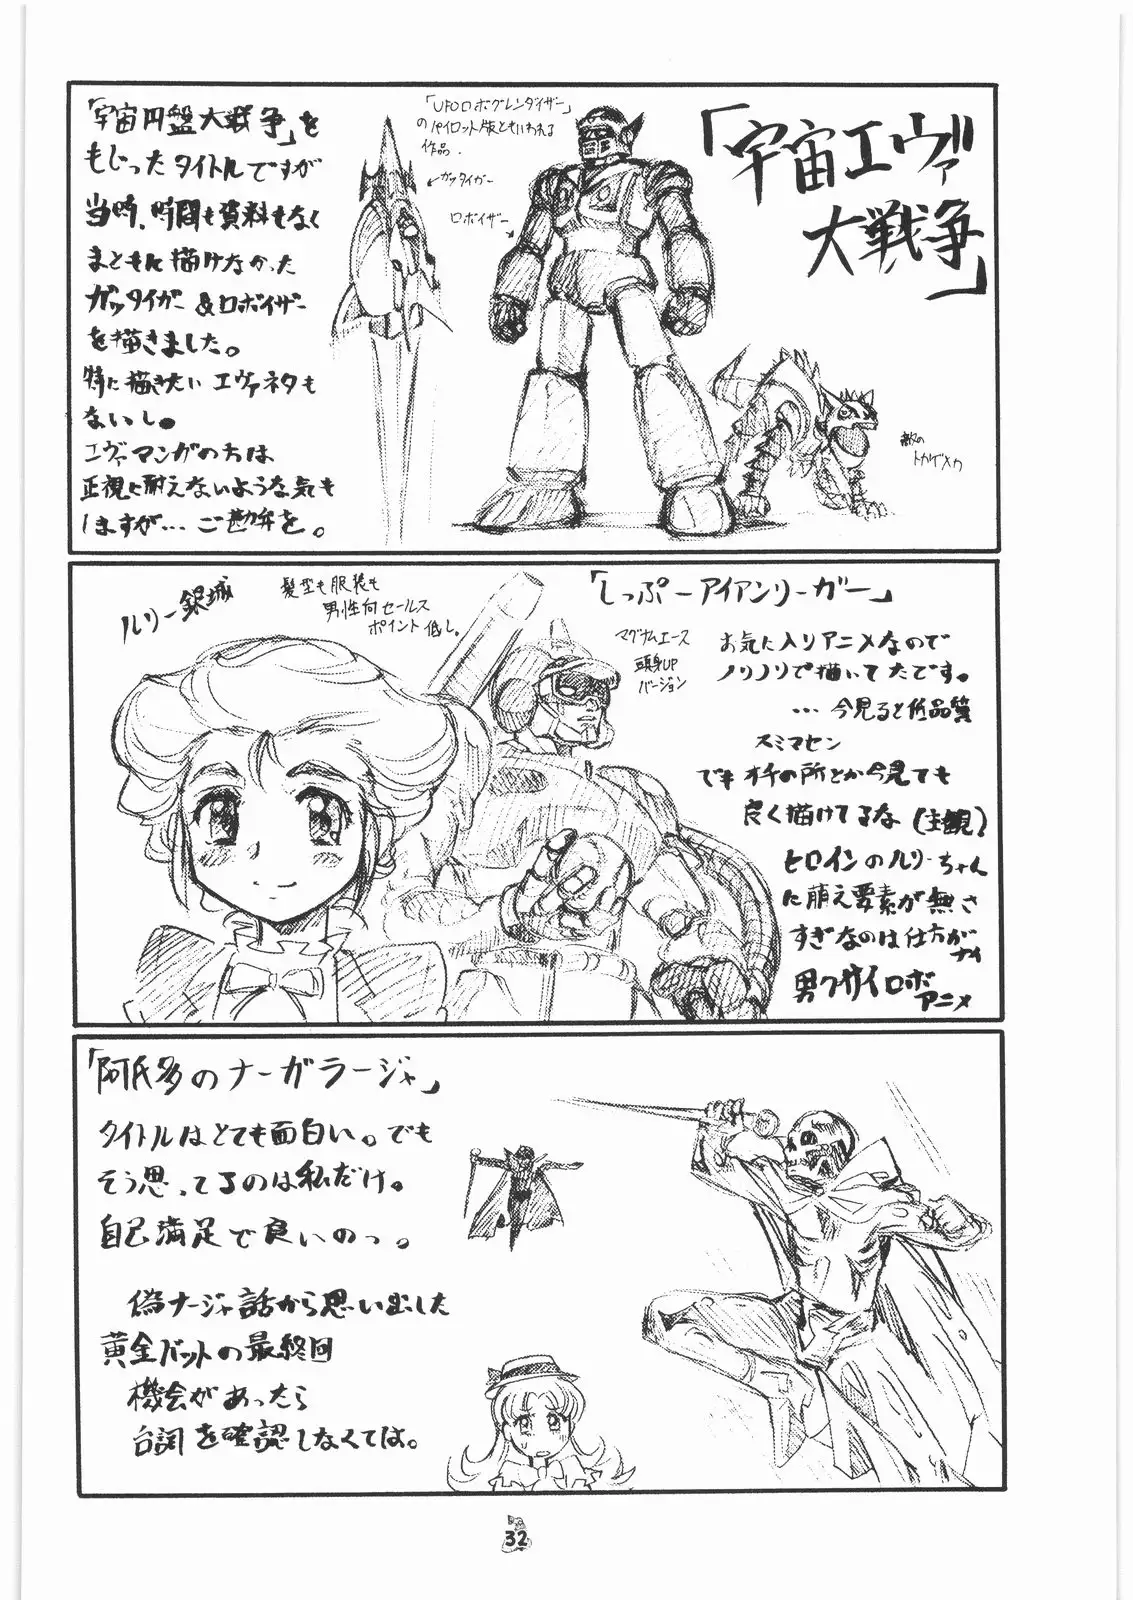 「宇宙エヴァ
大戦争」
「宇宙円盤大戦争」を
もじったタイトルですが
当時、時間も資料もなく
まともに描けなかった
ガッタイガー&ロボイザー
を描きました。
特に描きたいエヴァネタも
ないし。
エヴァマンガの方は
正視に耐えないような気も
しますが…ご勘弁を。
「UFOロボグレンダイザー」
のパイロット版ともいわれる
作品.
ガッタイガー
ロボイザー
敵の
トカゲメカ
「しっぷーアイアンリーガー」
お気に入りアニメなので
ノリノリで描いてたです。
…今見ると作品質
スミマセン
でもオチの所とか今見ても
良く描けてるな(主観)
ヒロインのルリーちゃん
に萌え要素が無さ
すぎなのは仕方が
ナイ
男クサイロボ
アニメ
マグナムエース
頭身UP
バージョン
ルリー銀城
髪型も服装も
男性向セールス
ポイント低し。
「阿氏多のナーガラージャ」
タイトルはとても面白い。でも
そう思ってるのは私だけ。
自己満足で良いのっ。
偽ナージャ話から思い出した
黄金バットの最終回
機会があったら
台詞を確認しなくては。
32